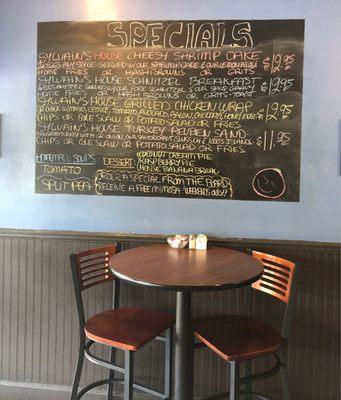 SPECIALS
SYLVAIN'S HOUSE CHEESY SHRIMP CAKE $12.95
2 EGGS ANY STYLE SERVED W/ OUR SHRIMP CAKE & OUR LEMON
HOME FRIES OR HASH BROWNS OR GRITS
SYLVAIN'S HOUSE SCHNITZEL BREAKFAST $12.95
2 EGGS ANY STYLE W/ OUR PORK SCHNITZEL & OUR SAUS GRAVY
HOME FRIES OR HASH BROWNS OR GRITS - TOAST
SYLVAIN'S HOUSE GRILLED CHICKEN WRAP $12.95
LETTUCE, TOMATO, AVOCADO, BACON,
CHIPS OR COLE SLAW OR POTATO SALAD OR FRIES
SYLVAIN'S HOUSE TURKEY REUBEN SAND. $11.95
CHIPS OR COLE SLAW OR POTATO SALAD OR FRIES
HOMEMADE SOUPS
TOMATO
SPLIT PEA
DESSERT:
COCONUT CREAM PIE
RASPBERRY PIE
HOUSE BANANA BREAD
ORDER A SPECIAL FROM THE BOARD
RECEIVE A FREE MIMOSA (WEEKENDS ONLY)